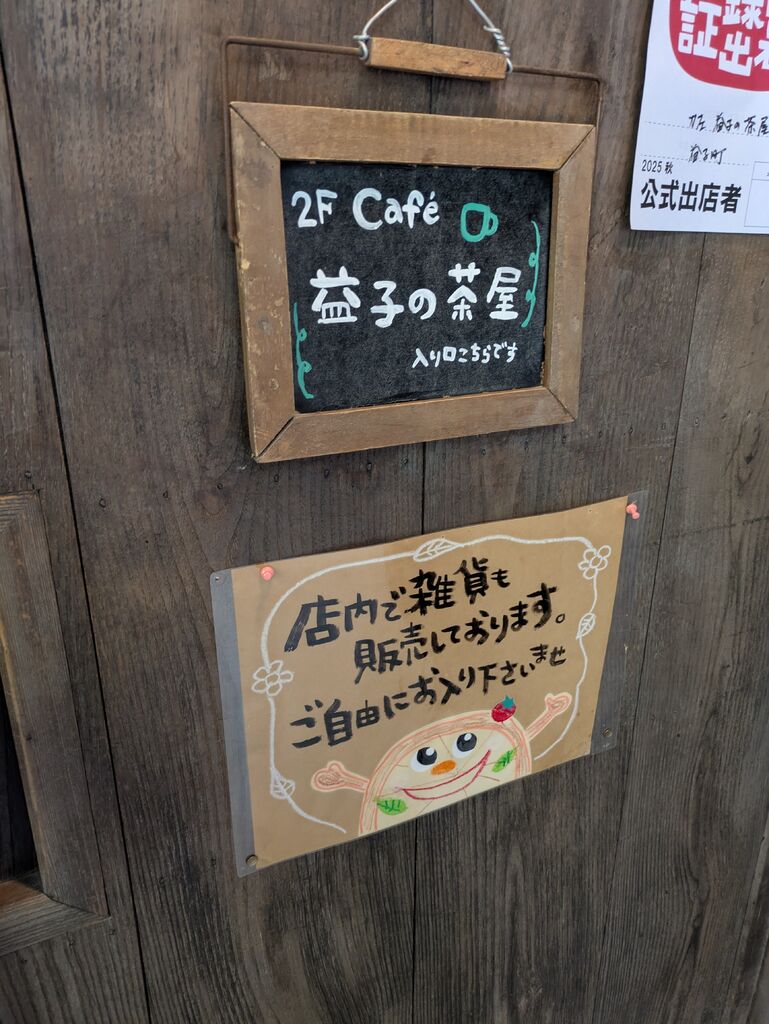 2F Café
益子の茶屋
入り口こちらです
証
カフェ 益子の茶屋
益子町
2025 秋
公式出店者
店内で雑貨も
販売しております。
ご自由にお入り下さいませ